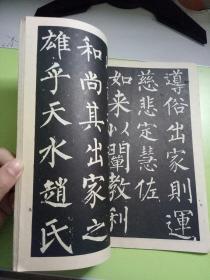 導俗出家則運
慈悲定慧佐
如来以闡教利
和尚其出家之
雄乎天水趙氏